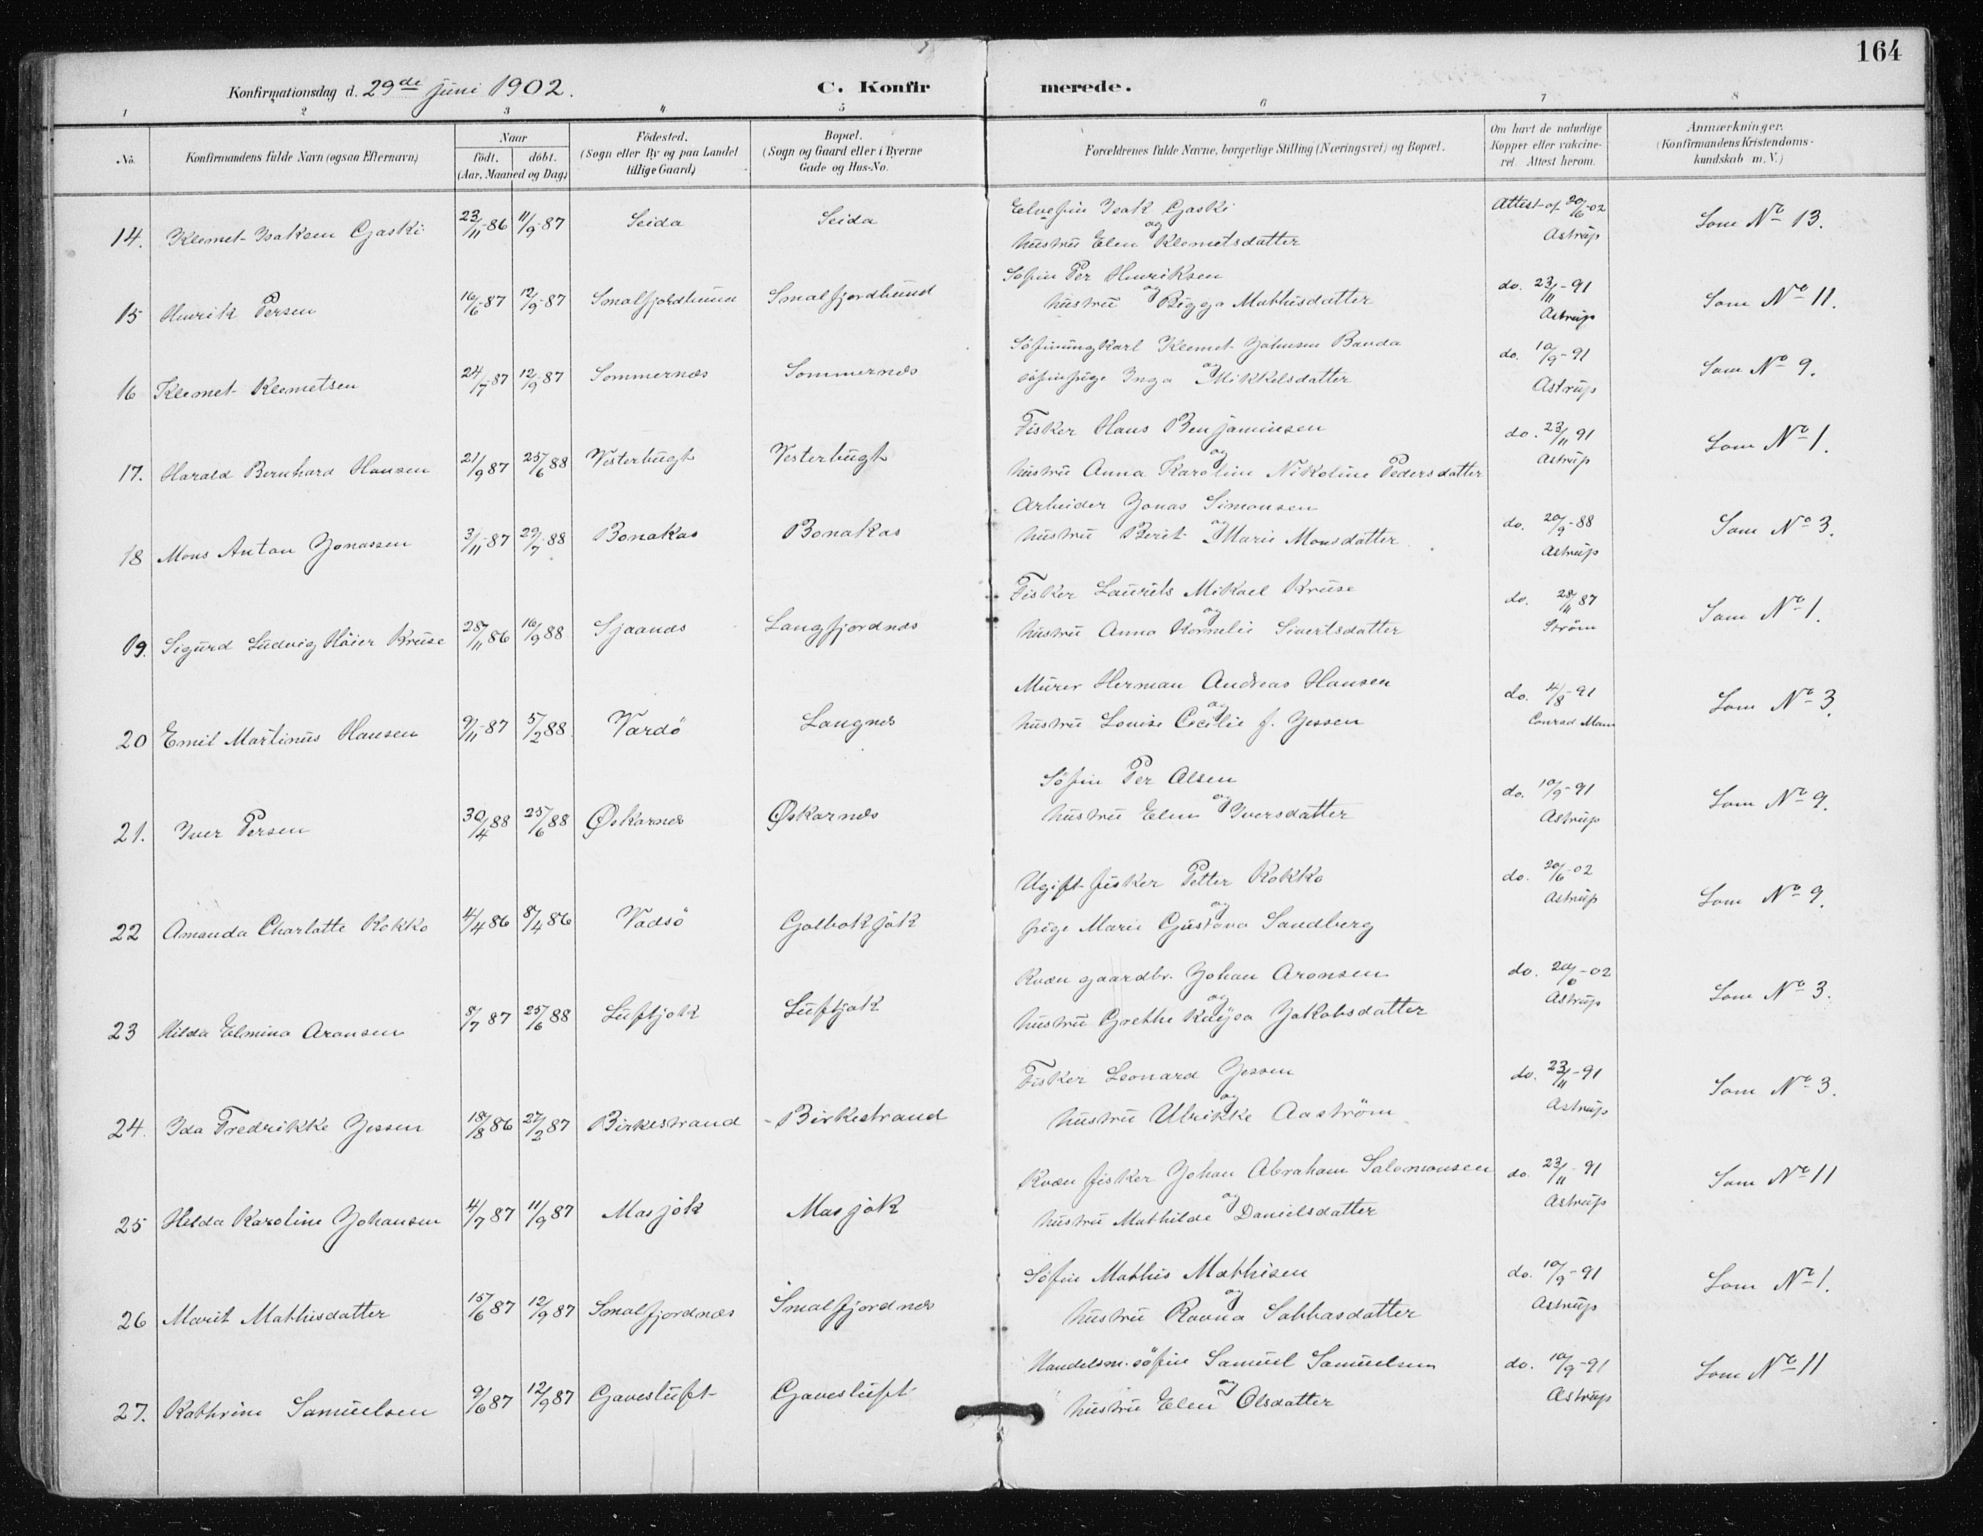 164
Konfirmationsdag d. 29de juni 1902. C. Konfirmerede.
1 2 3 4 5 6 7 8
No. Konfirmandens fulde Navn (ogsaa Efternavn) Naar født. døbt. (Aar, Maaned og Dag) Fødested. (Sogn eller By og paa Landet tillige Gaard) Bopæl. (Sogn og Gaard eller i Byerne Gade og Hus-No. Forældrenes fulde Navne, borgerlige Stilling (Næringsvei) og Bopæl. Om havt de naturlige Kopper eller vaccineret. Attest herom. Anmærkninger. (Konfirmandens Kristendomskundskab m. V.)
14. Klemet Isaksen Gaski 23/11-86 11/9-87 Seida Seida Elvefin Isak Gaski og Attest af 20/6-02 Som No 13.
hustru Elen Klemetsdatter Astrup
15 Henrik Persen 16/6-87 12/9-87 Smalfjordbund Smalfjordbund Søfin Per Henriksen og do. 23/11-91 Som No 11.
hustru Bigga Mathisdatter Astrup
16 Klemet Klemetsen 24/7-87 12/9-87 Sommernæs Sommernæs Søfinungkarl Klemet Johnsen Banda og do. 10/9-91 Som No 9.
søfinpige Inga Mikkelsdatter Astrup
17. Harald Bernhard Hansen 21/9 87 25/6 88 Vesterbugt Vesterbugt Fisker Hans Benjaminsen og do. 23/11 91 Som No 1.
hustru Anna Karoline Nikoline Pedersdatter Astrup
18 Mons Anton Jonassen 3/11-87 29/7-88 Bonakas Bonakas Arbeider Jonas Simonsen og do. 20/9-88 Som No 3.
hustru Berit Marie Monsdatter Astrup
19. Sigurd Ludvig Høier Kruse 28/11 86 16/9 88 Sjaanæs Langfjordnæs Fisker Laurits Mikael Kruse og do. 28/11 87 Som No 1.
hustru Anna Kornelie Sivertsdatter Strøm
20 Emil Martinus Hansen 9/11-87 5/2 88 Vardö Langnes Murer Herman Andreas Hansen og do. 4/8-91 Som No 3.
hustru Louise Cecilie f. Jessen Conrad Mam
21. Iver Persen 30/4 88 25/6 88 Øskarnes Øskarnes Søfin Per Olsen og do. 10/9-91 Som No 9.
hustru Elen Iversdatter Astrup
22 Amanda Charlotte Kokko 4/4 86 8/4 86 Vadsö Golbokjok Ugift fisker Petter Kokko og do. 20/6-02 Som No 9.
pige Marie Gustava Sandberg Astrup
23 Hilda Elmina Aronsen 8/7 87 25/6 88 Luftjok Luftjok Kvæn gaardbr. Johan Aronsen og do. 20/6-02 Som No 3.
hustru Grethe Kaysa Jakobsdatter Astrup
24. Ida Fredrikke Jessen 18/8 86 27/2 87 Birkestrand Birkestrand Fisker Leonard Jessen og do. 23/11-91 Som No 3.
hustru Ulrikke Aaström Astrup
25 Helda Karoline Johansen 4/7 87 11/9 87 Masjok Masjok Kvæn fisker Johan Abraham Salomonsen og do. 23/11 91 Som No 11
hustru Mathilde Danielsdatter Astrup
26 Marit Mathisdatter 15/6 87 12/9 87 Smalfjordnæs Smalfjordnæs Søfin Mathis Mathisen og do. 10/9-91 Som No 1.
hustru Ravna Sabbasdatter Astrup
27. Kathrine Samuelsen 9/6 87 12/9 87 Gavesluft Gavesluft Handelsm. søfin Samuel Samuelsen og do. 10/9-91 Som No 11
hustru Elen Olsdatter Astrup